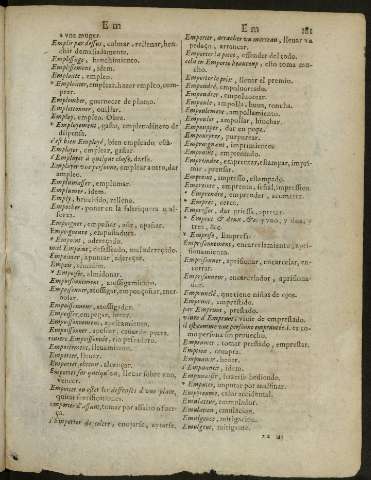 E m
E m
181
a vne muger.
Emplir par dessus, colmar, rellenar, hen-
chir demasiadamente.
Emplissage, henchimiento.
Emplissement, idem.
Emploite, empleo.
* Emploiter, emplear, hazer empleo, com-
prar.
Emplomber, guarnecer de plomo.
Emplotonner, ouillar.
Employ, empleo. Obra.
* Employement, gasto, empleo, dinero de
dispensa.
c'est bien Employé, bien empleado està.
Employer, emplear, gastar.
s'Employer à quelque chose, darse.
Employer vne personne, emplear a otro, dar
empleo.
Emplumasser, emplumar.
Emplumer, idem.
Emply, henchido, relleno.
Empocher, poner en la faltriquera o al-
forja.
Empoigner, empuñar, asir, apañar.
Empoigneure, empuñadura.
* Empoint, adereçado.
mal Empoint, desaliñado, mal adereçado.
Empointer, apuntar, adereçar.
Empois, almidon.
* Empoiser, almidonar.
Empoisonnement, atossigamiento.
Empoisonner, atossigar, empoçoñar, ener-
bolar.
Empoisonneur, atossigador.
Empoisser, empegar, brear.
Empoissonnement,
Empoissonner, pescar, echar de peces.
riuiere Empoissonnée, rio pescadero.
Emportement, lleuamiento.
Emporter, lleuar.
Emporter, obtener, alcançar.
Emporter sur quelqu'vn, lleuar sobre vno,
vencer.
Emporter ou oster les deffenses d'vne place,
quitar las defensas.
emporter d'assaut, tomar por assalto o fuer-
ça.
s'Emporter de colere, enojarse, ayrarse.
Emporter, arracher vn morceau, lleuar vn
pedaço, arrancar.
Emporter la piece, offender del todo.
cela m'Emporte beaucoup, esto toma mu-
cho.
Emporter le prix, lleuar el premio.
Empoudré, empoluoreado.
Empoudrer, empoluorear.
Empoule, ampolla, buua, roncha.
Empoulement, ampollamiento.
Empouler, ampollar, hinchar.
Empoupper, dar en popa.
Empourprer, purpurar.
Empreignant, imprimiente.
Empreint, emprentado.
Empreindre, emprentar, estampar, impri-
mir, prensar.
Empreint, impresso, estampado.
Empreinte, emprenta, señal, impression
* Emprendre, emprender, acometer.
* Emprés, cerca.
Empresser, dar priessa, apretar.
* Empret & deux, &c. y vno, y dos, y
tres, &c.
* Emprise, Empresa.
Emprisonnement, encarcelamiento, apri-
sionamiento.
Emprisonner, aprisionar, encarcelar, en-
cerrar.
Emprisonneur, encarcelador, aprisiona-
dor.
Emprunelé, que tiene niñas de ojos.
Emprunt, emprestado.
par Emprunt, prestado.
viure d'Emprunt, viuir de emprestado.
il est comme vne personne empruntée
mo persona sin prouecho.
Emprunter, tomar prestado, emprestar.
Empuantir, heder.
s'Empuantir, idem.
Empuantissement, hazerse hediondo.
* Empurer, imputar por
Empyreume, calor accidental.
Emulateur, emulador.
Emulation, emulacion.
Emulgence, mitigacion.
Emulgent, mitigante.